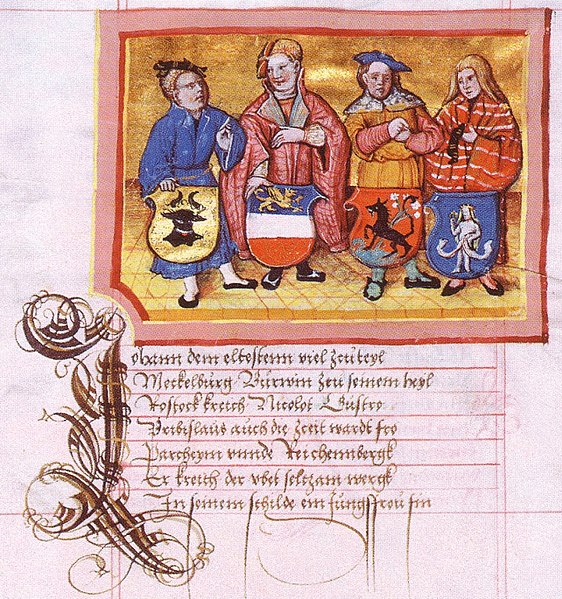 Johann dem eltestenn viel zcu teyl
Meckelburg Burwin zcu seinem heyl
Rostock kreich Nicolot Gustro
Pribislaus auch die zceit wardt fro
Parcheym unnde Reichennbergk
Er kreich der ubet seltzam wergk
In seinem schilde ein Jungfrou fin